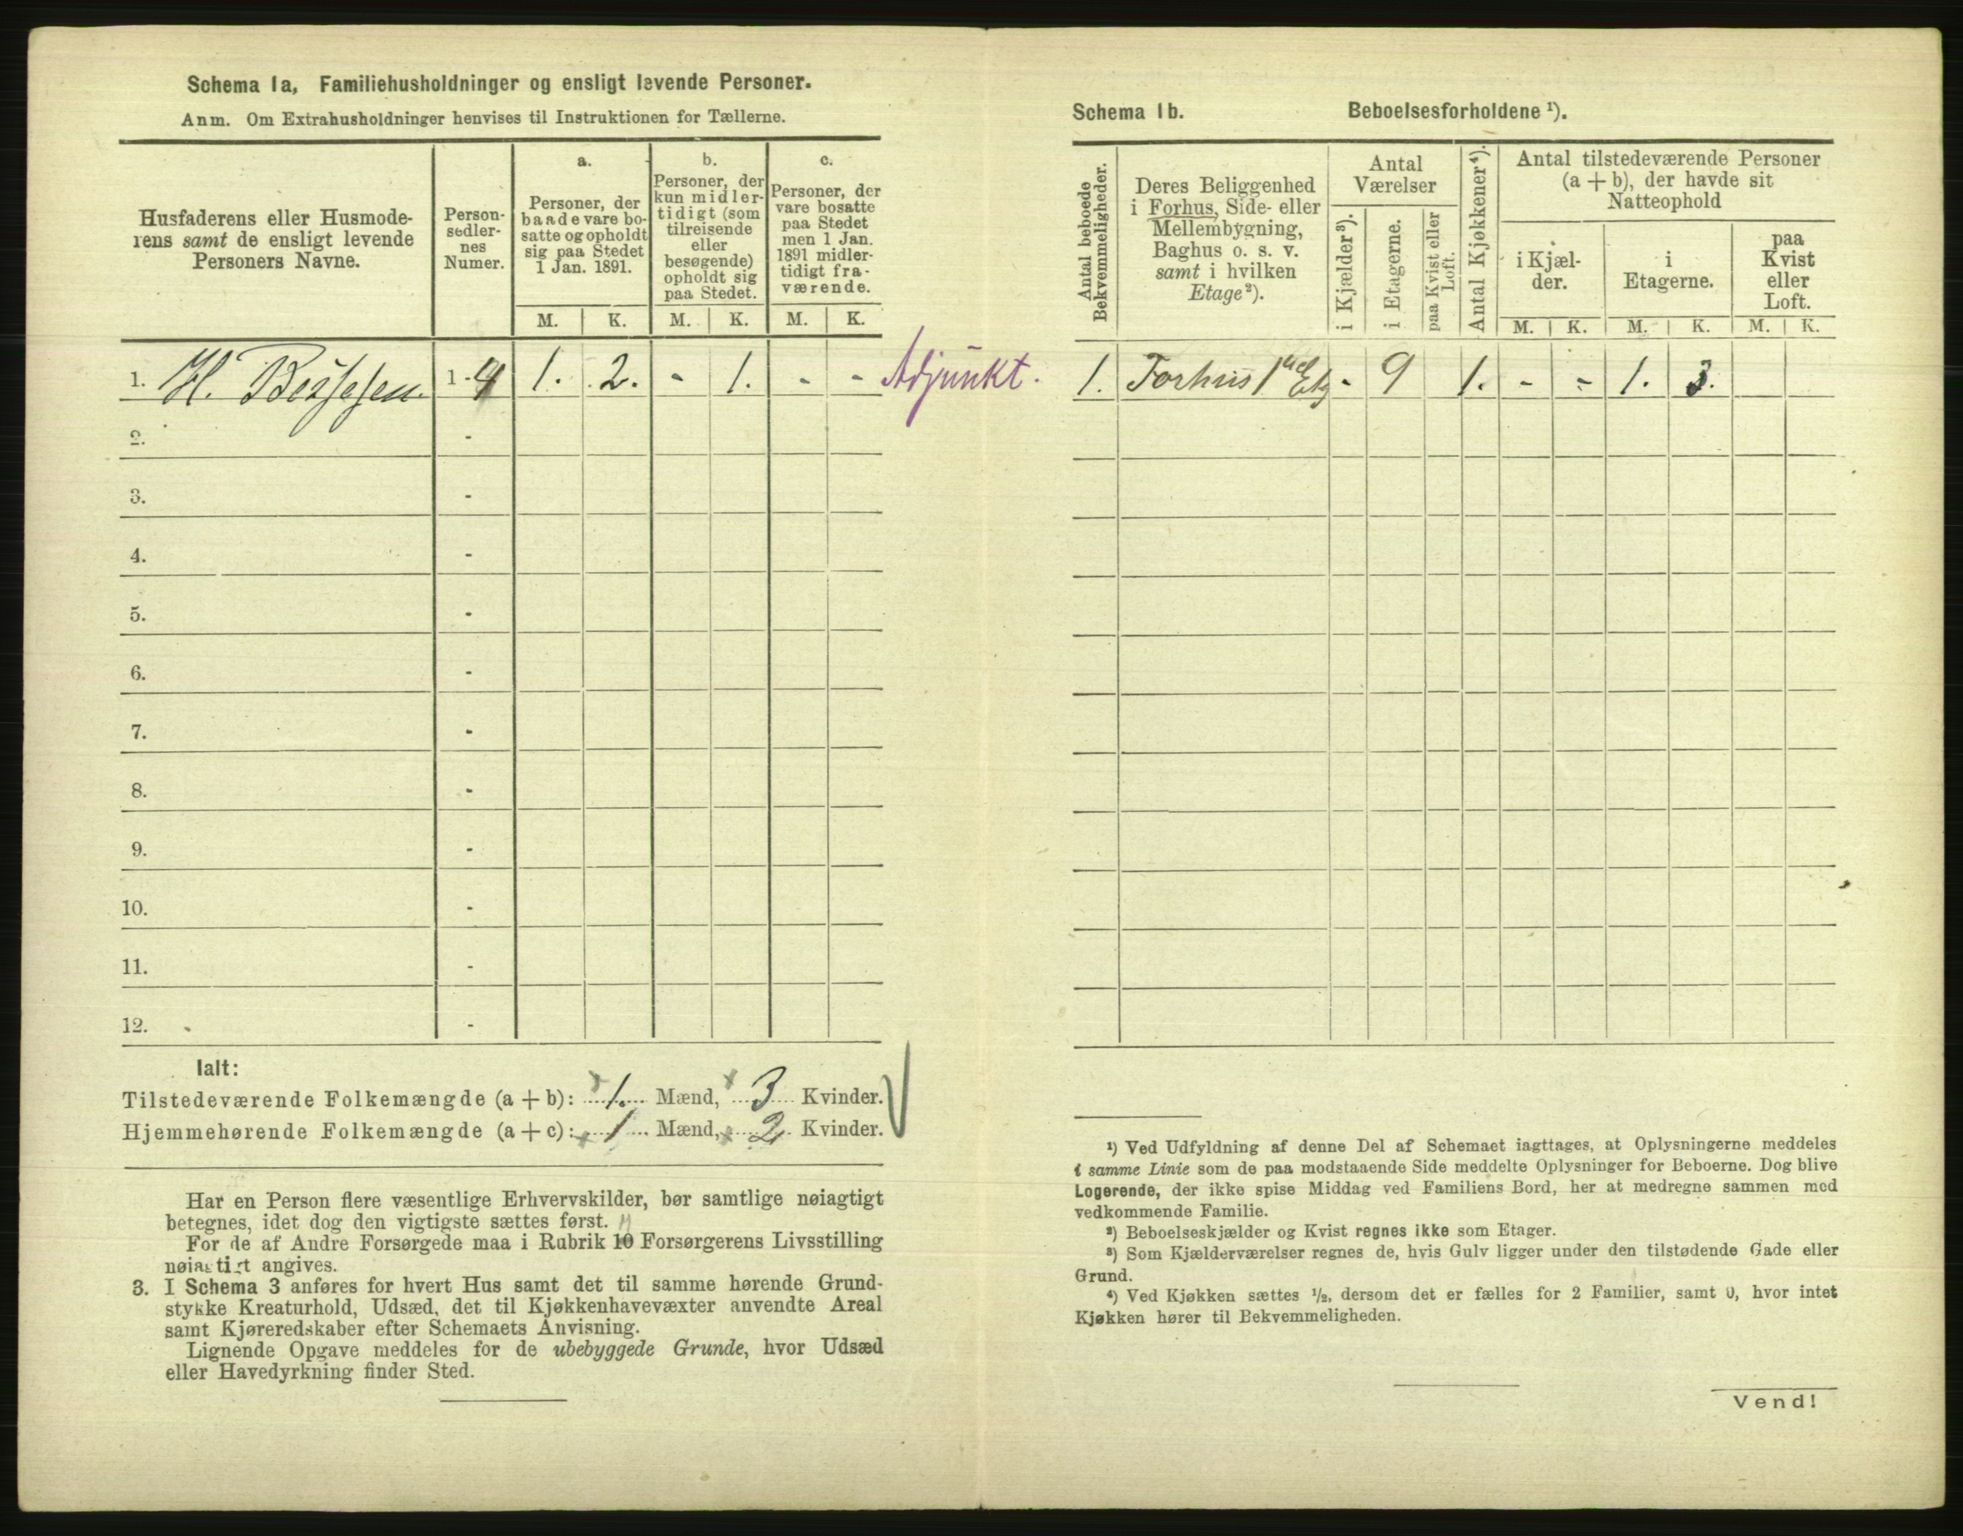 Schema 1a, Familiehusholdninger og ensligt levende Personer.
Anm. Om Extrahusholdninger henvises til Instruktionen for Tællerne.
Husfaderens eller Husmode-
rens samt de ensligt levende
Personers Navne.
Person-
sedler-
nes
Numer.
a.
Personer, der
baade vare bo-
satte og opholdt
sig paa Stedet
1 Jan. 1891.
b.
Personer, der
kun midler-
tidigt (som
tilreisende
eller
besøgende)
opholdt sig
paa Stedet.
c.
Personer, der
vare bosatte
paa Stedet
men 1 Jan.
1891 midler-
tidigt fra-
værende.
M. K. M. K. M. K.
1. H. Bessesen. 1-4 1. 2. - 1. - - Adjunkt.
2. -
3. -
4. -
5. -
6. -
7. -
8. -
9. -
10. -
11. -
12. -
Ialt:
Tilstedeværende Folkemængde (a + b): 1. Mænd, 3 Kvinder.
Hjemmehørende Folkemængde (a + c): 1 Mænd, 2 Kvinder.
Har en Person flere væsentlige Erhvervskilder, bør samtlige nøiagtigt
betegnes, idet dog den vigtigste sættes først.
For de af Andre Forsørgede maa i Rubrik 10 Forsørgerens Livsstilling
nøiagtigt angives.
3. I Schema 3 anføres for hvert Hus samt det til samme hørende Grund-
stykke Kreaturhold, Udsæd, det til Kjøkkenhavevæxter anvendte Areal
samt Kjøreredskaber efter Schemaets Anvisning.
Lignende Opgave meddeles for de ubebyggede Grunde, hvor Udsæd
eller Havedyrkning finder Sted.
Schema 1b. Beboelsesforholdene ¹).
Antal beboede
Bekvemmeligheder.
Deres Beliggenhed
i Forhus, Side- eller
Mellembygning,
Baghus o. s. v.
samt i hvilken
Etage²).
Antal
Værelser
i Kjælder³).
i Etagerne.
paa Kvist eller
Loft.
Antal Kjøkkener⁴).
Antal tilstedeværende Personer
(a + b), der havde sit
Natteophold
i Kjæl-
der.
i
Etagerne.
paa
Kvist
eller
Loft.
M. K. M. K. M. K.
1. Forhus 1ste Etg - 9 1. - - 1. 3.
¹) Ved Udfyldning af denne Del af Schemaet iagttages, at Oplysningerne meddeles
i samme Linie som de paa modstaaende Side meddelte Oplysninger for Beboerne. Dog blive
Logerende, der ikke spise Middag ved Familiens Bord, her at medregne sammen med
vedkommende Familie.
²) Beboelseskjælder og Kvist regnes ikke som Etager.
³) Som Kjælderværelser regnes de, hvis Gulv ligger under den tilstødende Gade eller
Grund.
⁴) Ved Kjøkken sættes ½, dersom det er fælles for 2 Familier, samt 0, hvor intet
Kjøkken hører til Bekvemmeligheden.
Vend!